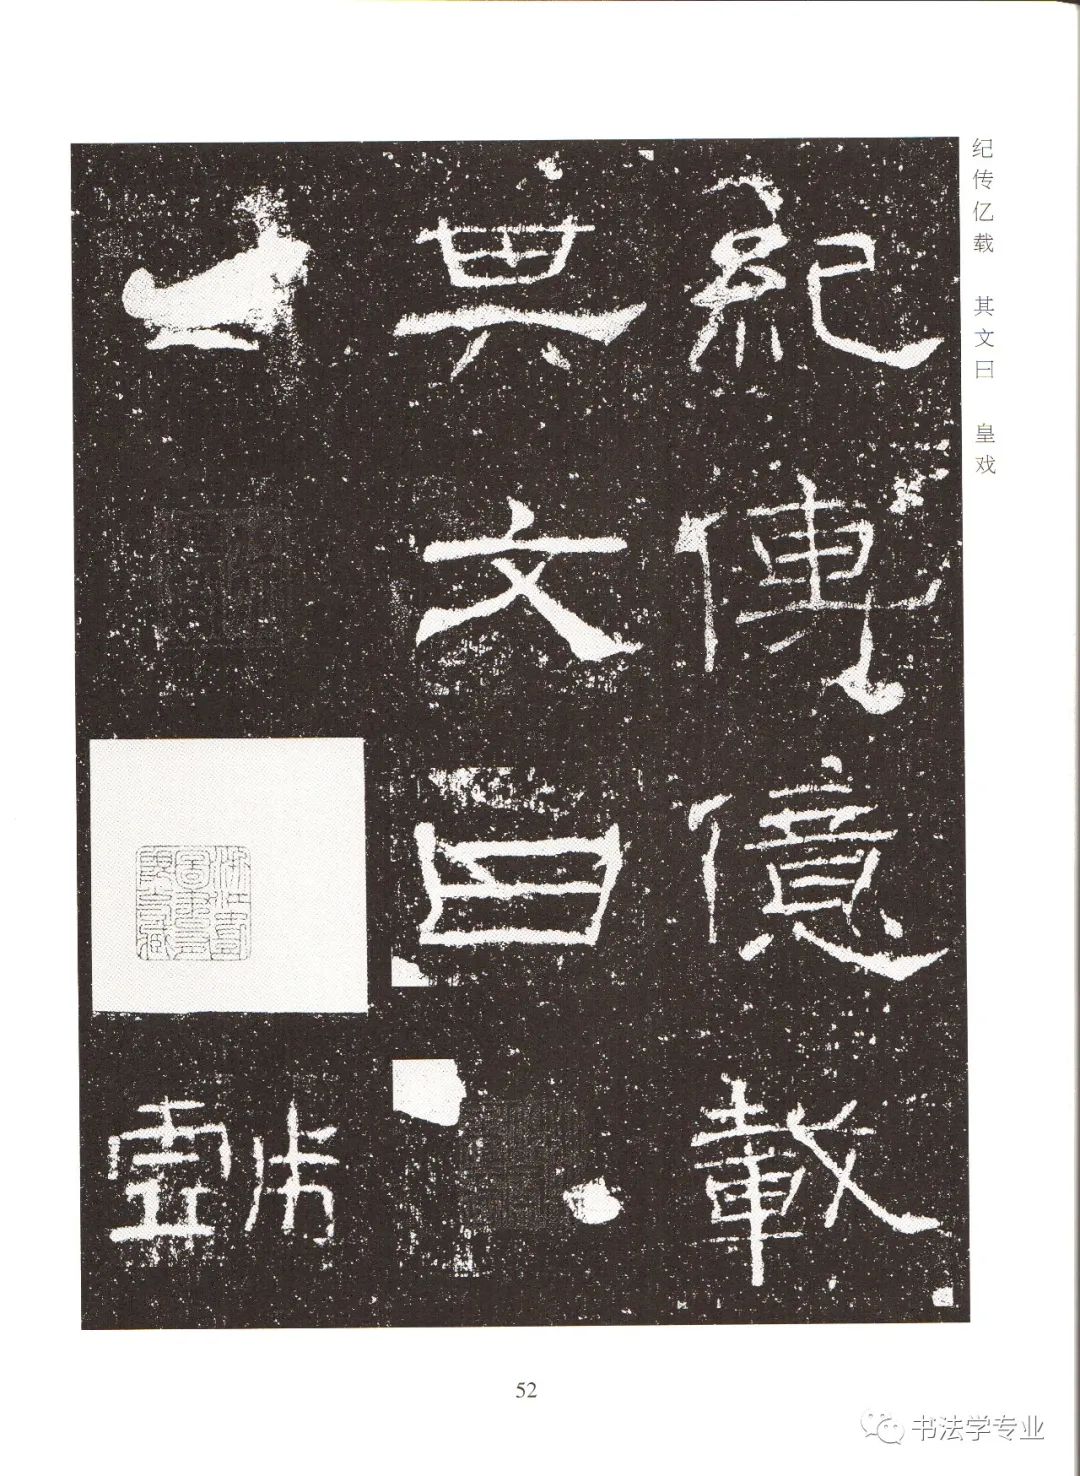 纪传亿载 其文曰 皇戏
紀傳億載
其文曰
戲
52
书法学专业